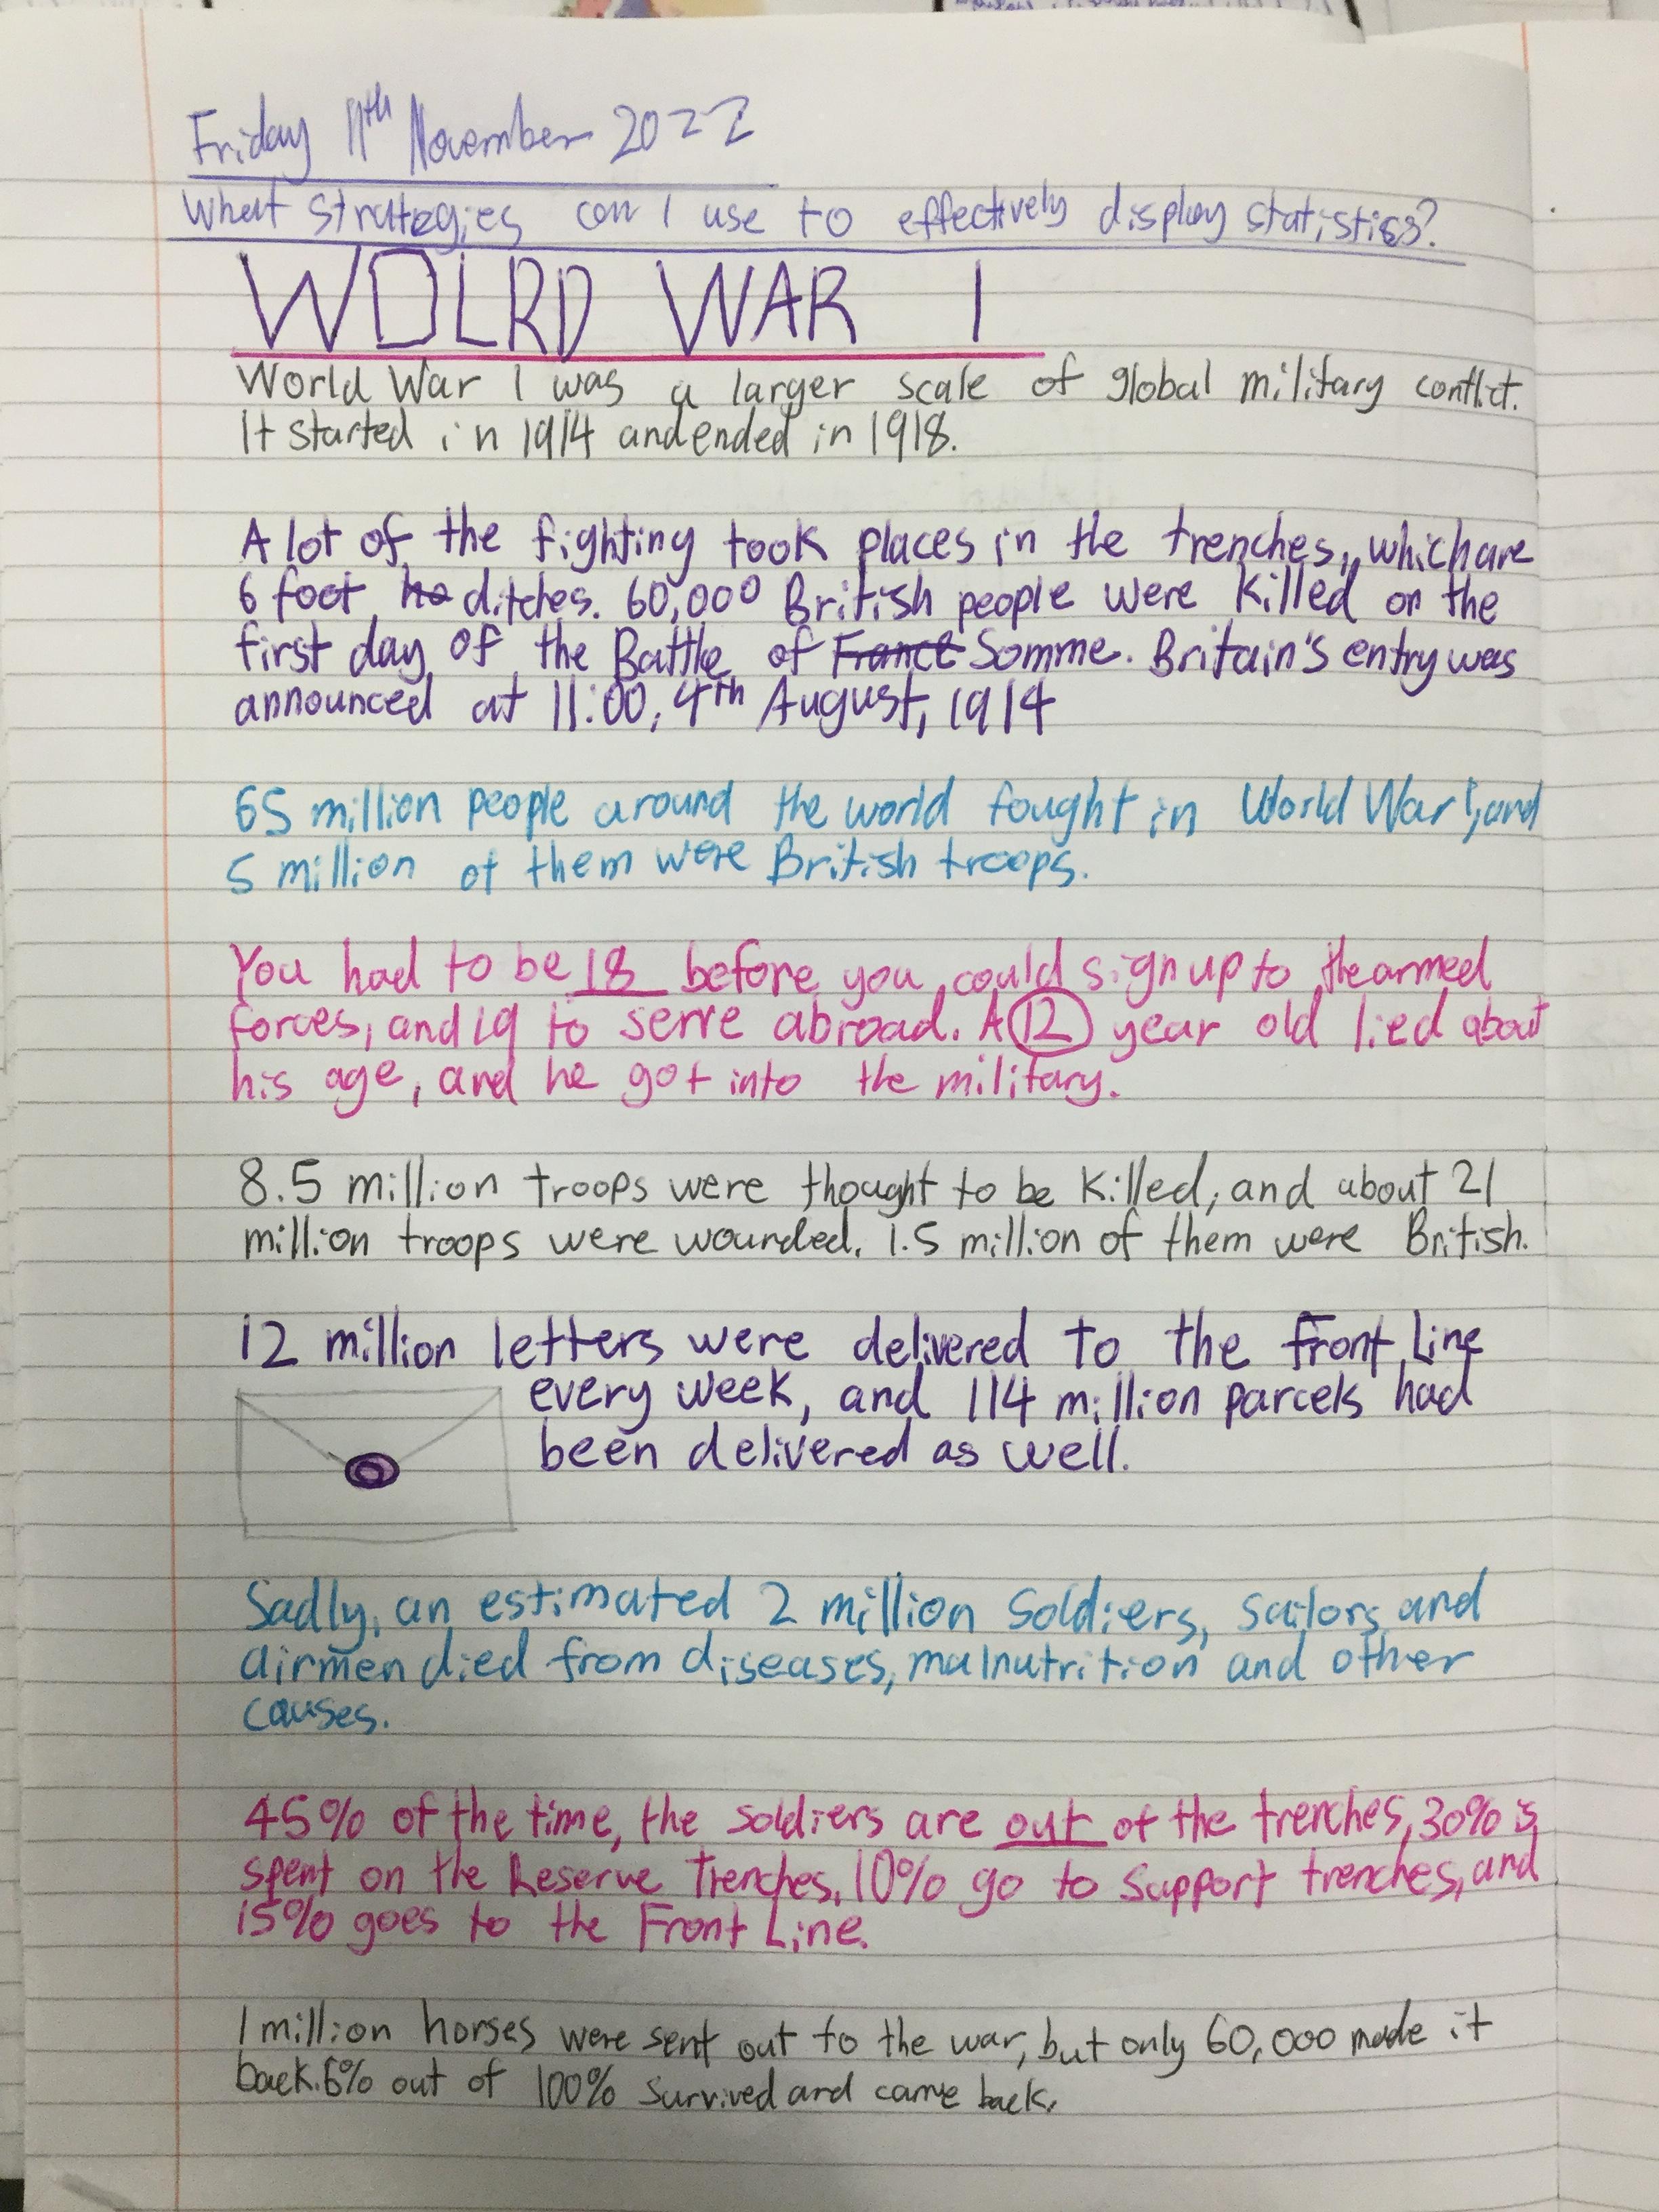 Friday 11th November 2022
What strategies can I use to effectively display statistics?
WOLRD WAR 1
World War 1 was a larger scale of global military conflict.
It started in 1914 and ended in 1918.
A lot of the fighting took places in the trenches, which are
6 foot ho ditches. 60,000 British people were killed on the
first day of the Battle of France Somme. Britain's entry was
announced at 11:00, 4th August, 1914
65 million people around the world fought in World War 1, and
5 million of them were British troops.
You had to be 18 before you could sign up to the armed
forces, and 19 to serve abroad. A 12 year old lied about
his age, and he got into the military.
8.5 million troops were thought to be killed, and about 21
million troops were wounded. 1.5 million of them were British.
12 million letters were delivered to the front Line
every week, and 114 million parcels had
been delivered as well.
Sadly, an estimated 2 million Soldiers, sailors and
airmen died from diseases, malnutrition and other
causes.
45% of the time, the soldiers are out of the trenches, 30% is
spent on the Reserve Trenches, 10% go to Support trenches, and
15% goes to the Front Line.
1 million horses were sent out to the war, but only 60,000 made it
back. 6% out of 100% survived and came back.